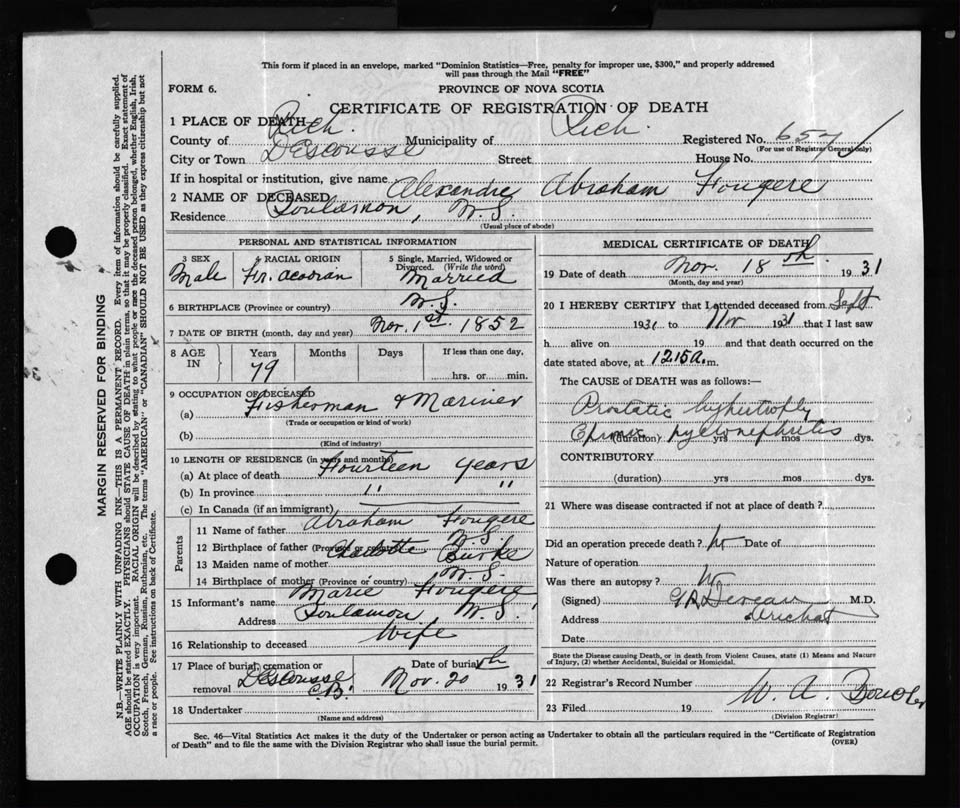 This form if placed in an envelope, marked "Dominion Statistics—Free, penalty for improper use, $300," and properly addressed
will pass through the Mail "FREE"
FORM 6.
PROVINCE OF NOVA SCOTIA
CERTIFICATE OF REGISTRATION OF DEATH
1 PLACE OF DEATH
County of Rich. Municipality of Rich. Registered No. 657
(For use of Registrar General only)
City or Town DEscousse Street House No.
If in hospital or institution, give name
2 NAME OF DECEASED Alexandre Abraham Fougere
Residence Poulamon, N.S.
(Usual place of abode)
PERSONAL AND STATISTICAL INFORMATION
3 SEX Male
4 RACIAL ORIGIN Fr. Acadian
5 Single, Married, Widowed or Divorced. (Write the word) Married
6 BIRTHPLACE (Province or country) N.S.
7 DATE OF BIRTH (month, day and year) Nov. 1st. 1852
8 AGE IN Years 79 Months Days If less than one day, hrs. or min.
9 OCCUPATION OF DECEASED
(a) Fisherman & Mariner
(Trade or occupation or kind of work)
(b)
(Kind of industry)
10 LENGTH OF RESIDENCE (in years and months)
(a) At place of death Fourteen years
(b) In province " "
(c) In Canada (if an immigrant)
Parents
11 Name of father Abraham Fougere
12 Birthplace of father (Province or country) N.S.
13 Maiden name of mother Charlotte Burke
14 Birthplace of mother (Province or country) N.S.
15 Informant's name Marie Fougere
Address Poulamon, N.S.
16 Relationship to deceased Wife
17 Place of burial, cremation or removal DEscousse C.B. Date of burial Nov. 20th 1931
18 Undertaker
(Name and address)
MEDICAL CERTIFICATE OF DEATH
19 Date of death Nov. 18th. 1931
(Month, day and year)
20 I HEREBY CERTIFY that I attended deceased from Sept
1931 to Nov 1931 that I last saw
h alive on 19 and that death occurred on the
date stated above, at 1215 a. m.
The CAUSE of DEATH was as follows:—
Prostatic hypertrophy
Chronic pyelonephritis
(duration) yrs mos dys.
CONTRIBUTORY
(duration) yrs mos dys.
21 Where was disease contracted if not at place of death?
Did an operation precede death? No Date of
Nature of operation
Was there an autopsy? No
(Signed) Deveau M.D.
Address Arichat
Date
State the Disease causing Death, or in death from Violent Causes, state (1) Means and Nature
of Injury, (2) whether Accidental, Suicidal or Homicidal.
22 Registrar's Record Number
23 Filed 19 W. A.
(Division Registrar)
Sec. 46—Vital Statistics Act makes it the duty of the Undertaker or person acting as Undertaker to obtain all the particulars required in the "Certificate of Registration
of Death" and to file the same with the Division Registrar who shall issue the burial permit.
(OVER)
MARGIN RESERVED FOR BINDING
N.B.—WRITE PLAINLY WITH UNFADING INK—THIS IS A PERMANENT RECORD. Every item of information should be carefully supplied.
AGE should be stated EXACTLY. PHYSICIANS should STATE CAUSE OF DEATH in plain terms, so that it may be properly classified. Exact statement of
OCCUPATION is very important. RACIAL ORIGIN will be described by stating to what people or race the deceased person belonged, whether English, Irish,
Scotch, French, German, Russian, Ruthenian, etc. The terms "AMERICAN" or "CANADIAN" SHOULD NOT BE USED as they express citizenship but not
a race or people. See instructions on back of Certificate.